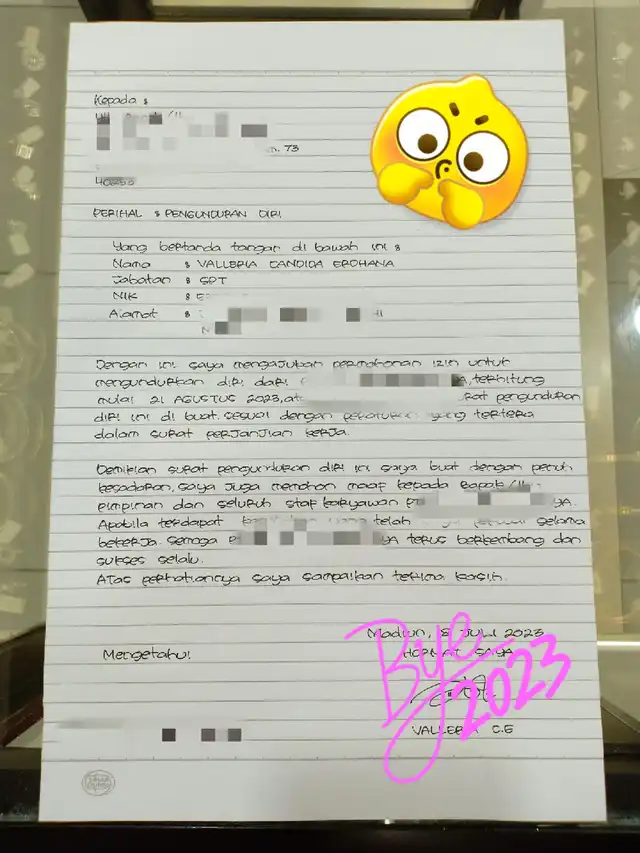 Kepada :
73
PERIHAL : PENGUNDURAN DIRI
Yang bertanda tangan di bawah ini :
Nama : VALLERIA CANDIDA ERDHANA
Jabatan : SPT
NIK :
Alamat :
Dengan ini saya mengajukan permohonan izin untuk
mengundurkan diri dari terhitung
mulai 21 AGUSTUS 2023, pengunduran
diri ini di buat sesuai dengan peraturan yang tertera
dalam surat perjanjian kerja.
Demikian surat pengunduran diri ini saya buat dengan penuh
kesadaran, saya juga memohon maaf kepada Bapak/
pimpinan dan seluruh staf karyawan
Apabila terdapat telah selama
bekerja. semoga terus berkembang dan
sukses selalu.
ATAS perhatiannya saya sampaikan terima kasih.
Madiun, 8 JULI 2023
Mengetahui HORMAT SAYA
Bye
2023
VALLERIA C.E